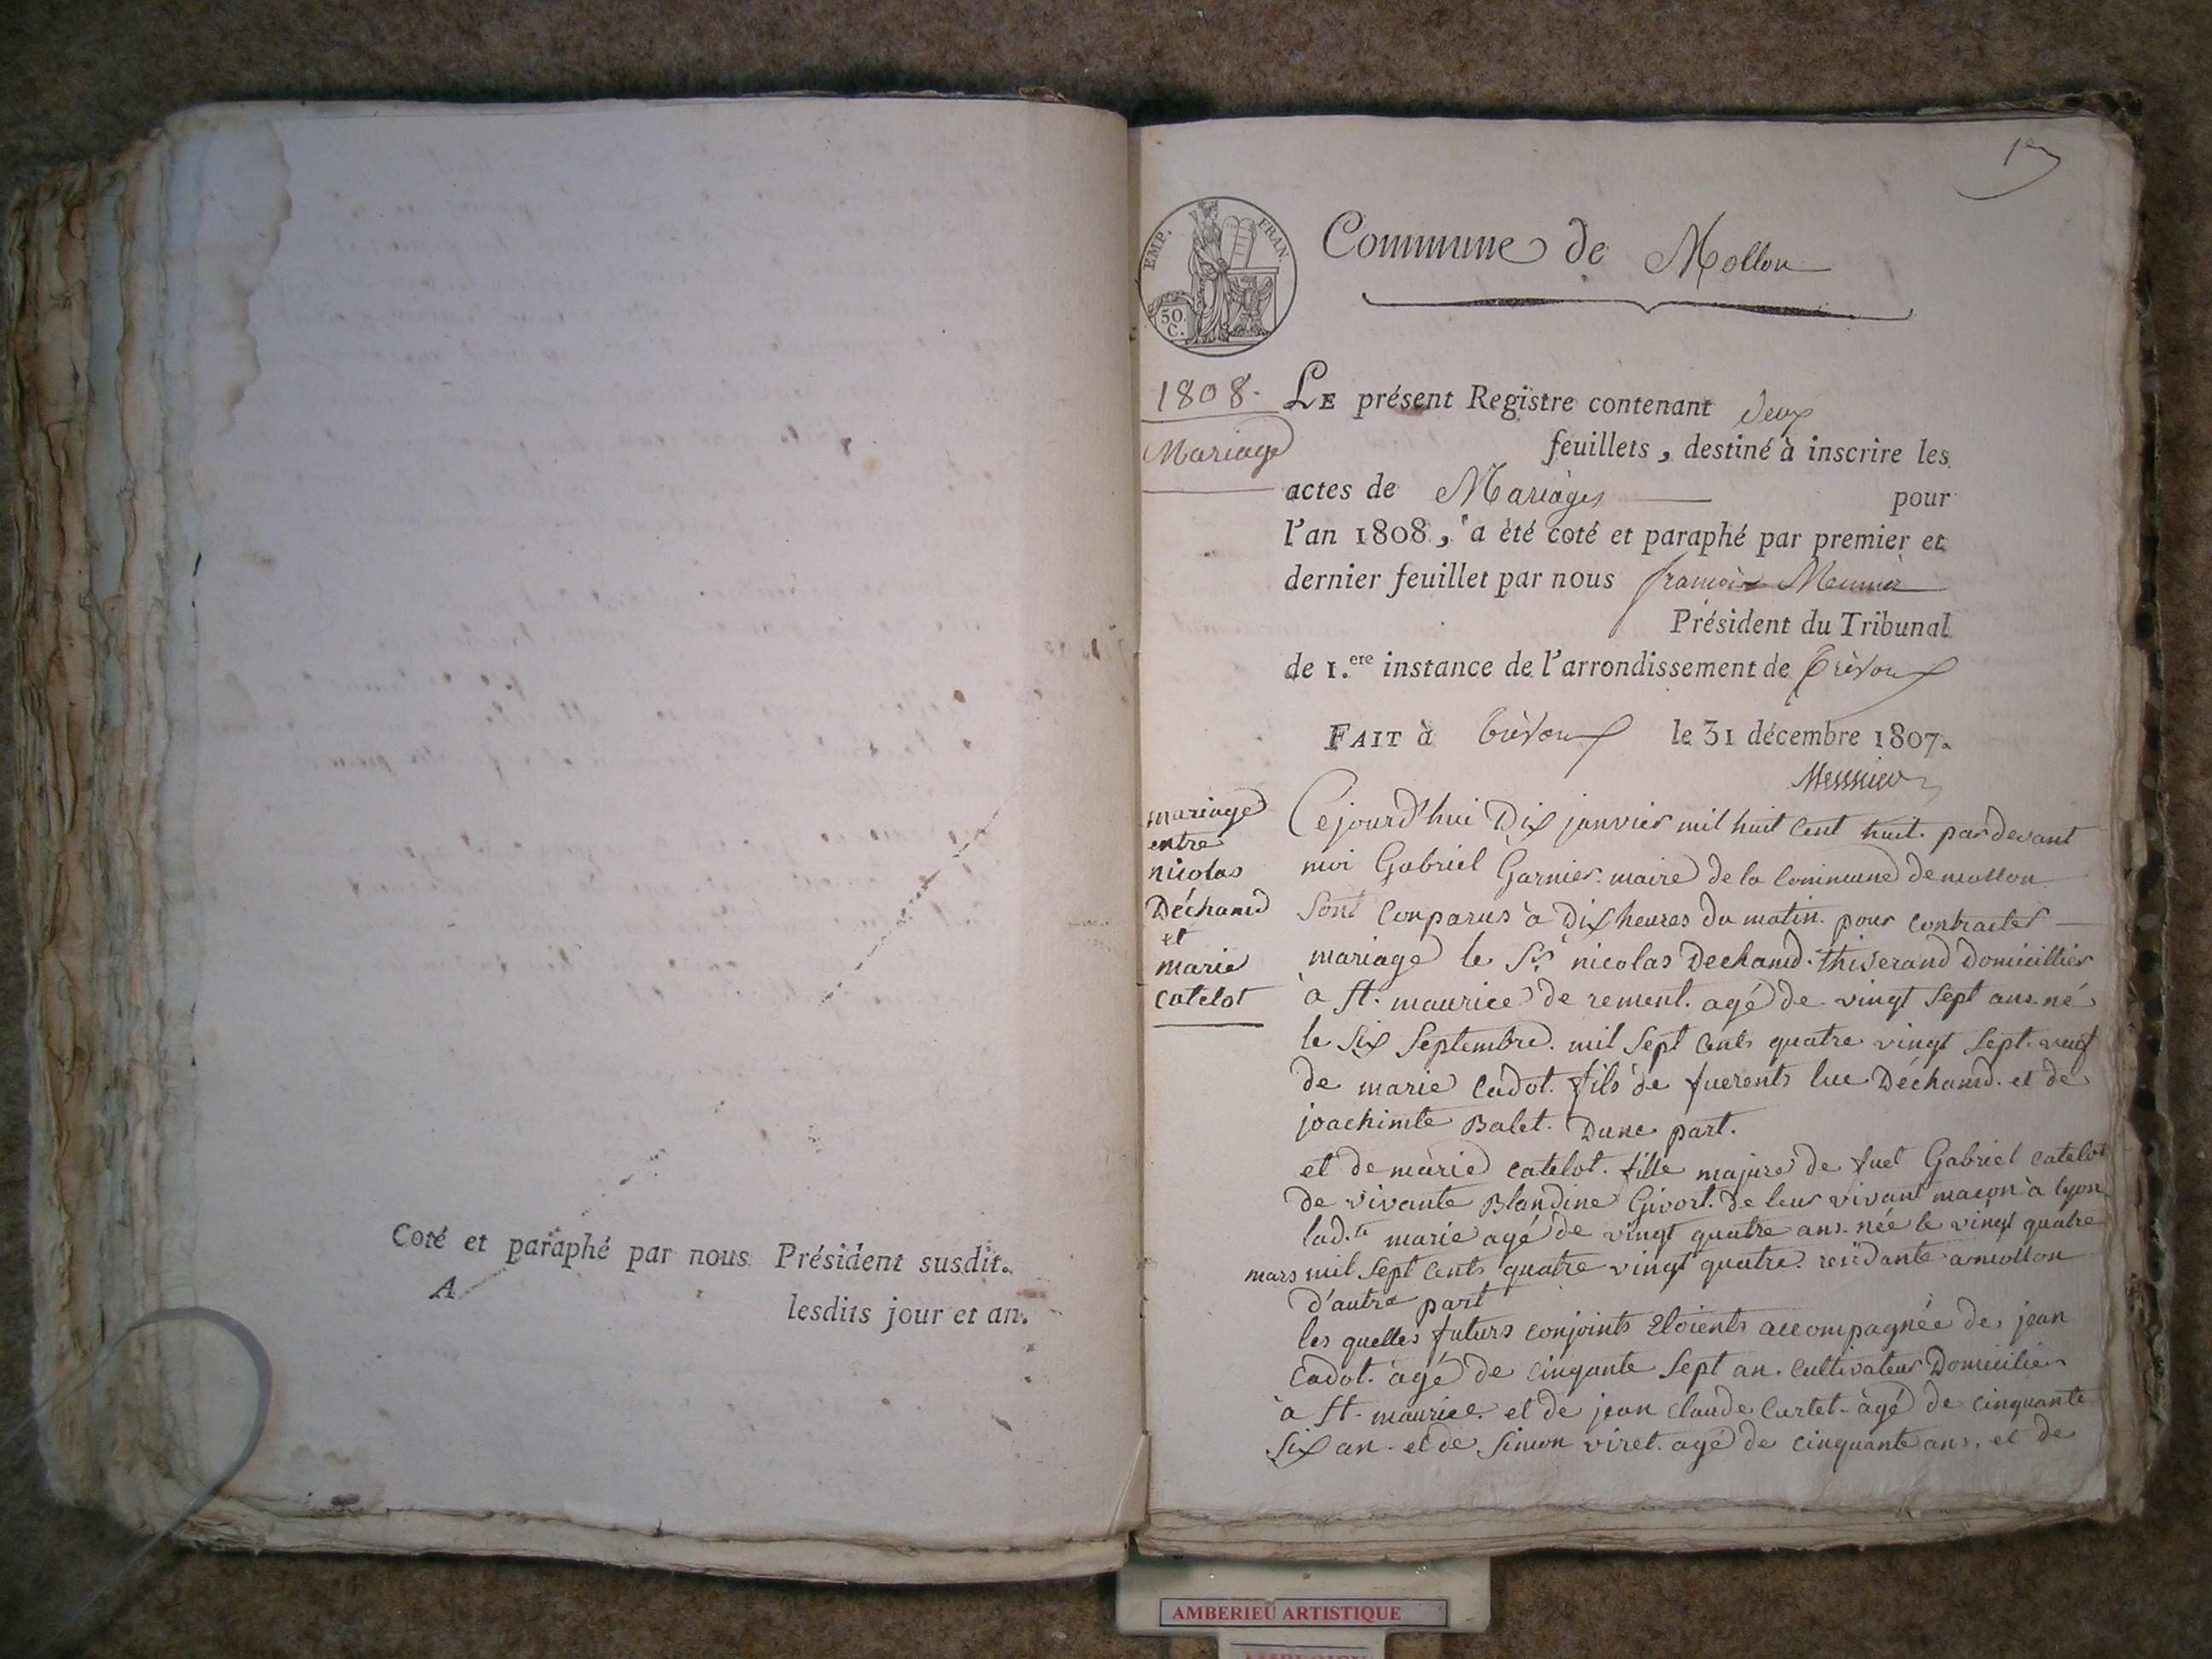 Coté et paraphé par nous Président susdit.
A
lesdits jour et an.
1er
EMP. FRAN.
50.
C.
Commune de Mollon
1808.
Mariage
LE présent Registre contenant deux
feuillets, destiné à inscrire les
actes de Mariages pour
l'an 1808, a été coté et paraphé par premier et
dernier feuillet par nous françois Meunier
Président du Tribunal
de 1.ere instance de l'arrondissement de Trévoux
FAIT à Trévoux le 31 décembre 1807.
Messnier
mariage
entre
nicolas
Déchand
et
marie
catelot
Cejourd'hui Dix janvier mil huit Cent huit. pardevant
moi Gabriel Garnier. maire de la Commune de mollon
sont Conparus à Dix heures du matin. pour contracter
mariage le Sr. nicolas Dechand. thiserand Domicillier
à st. maurice de rement. agé de vingt sept ans. né
le Six Septembre. mil Sept Cents quatre vingt Sept. veuf
de marie Cadot. fils de fuerents luc Déchand. et de
joachimte Balet. Dune part.
et de màrie catelot. fille majure de fuet Gabriel catelot
de vivante Blandine Givort. de leur vivant macon à lyon
lad.te marie agé de vingt quatre ans. née le vingt quatre
mars mil Sept Cents quatre vingt quatre. residante amollon
d'autre part
les quelles futurs conjoints Etoients accompagnée de, jean
Cadot. agé de cinqante Sept an. Cultivateur Domicilier
à st. maurice. et de jean claude Curtet. àgé de cinquante
Six an. et de Simon viret. agé de cinquante ans. et de
AMBERIEU ARTISTIQUE